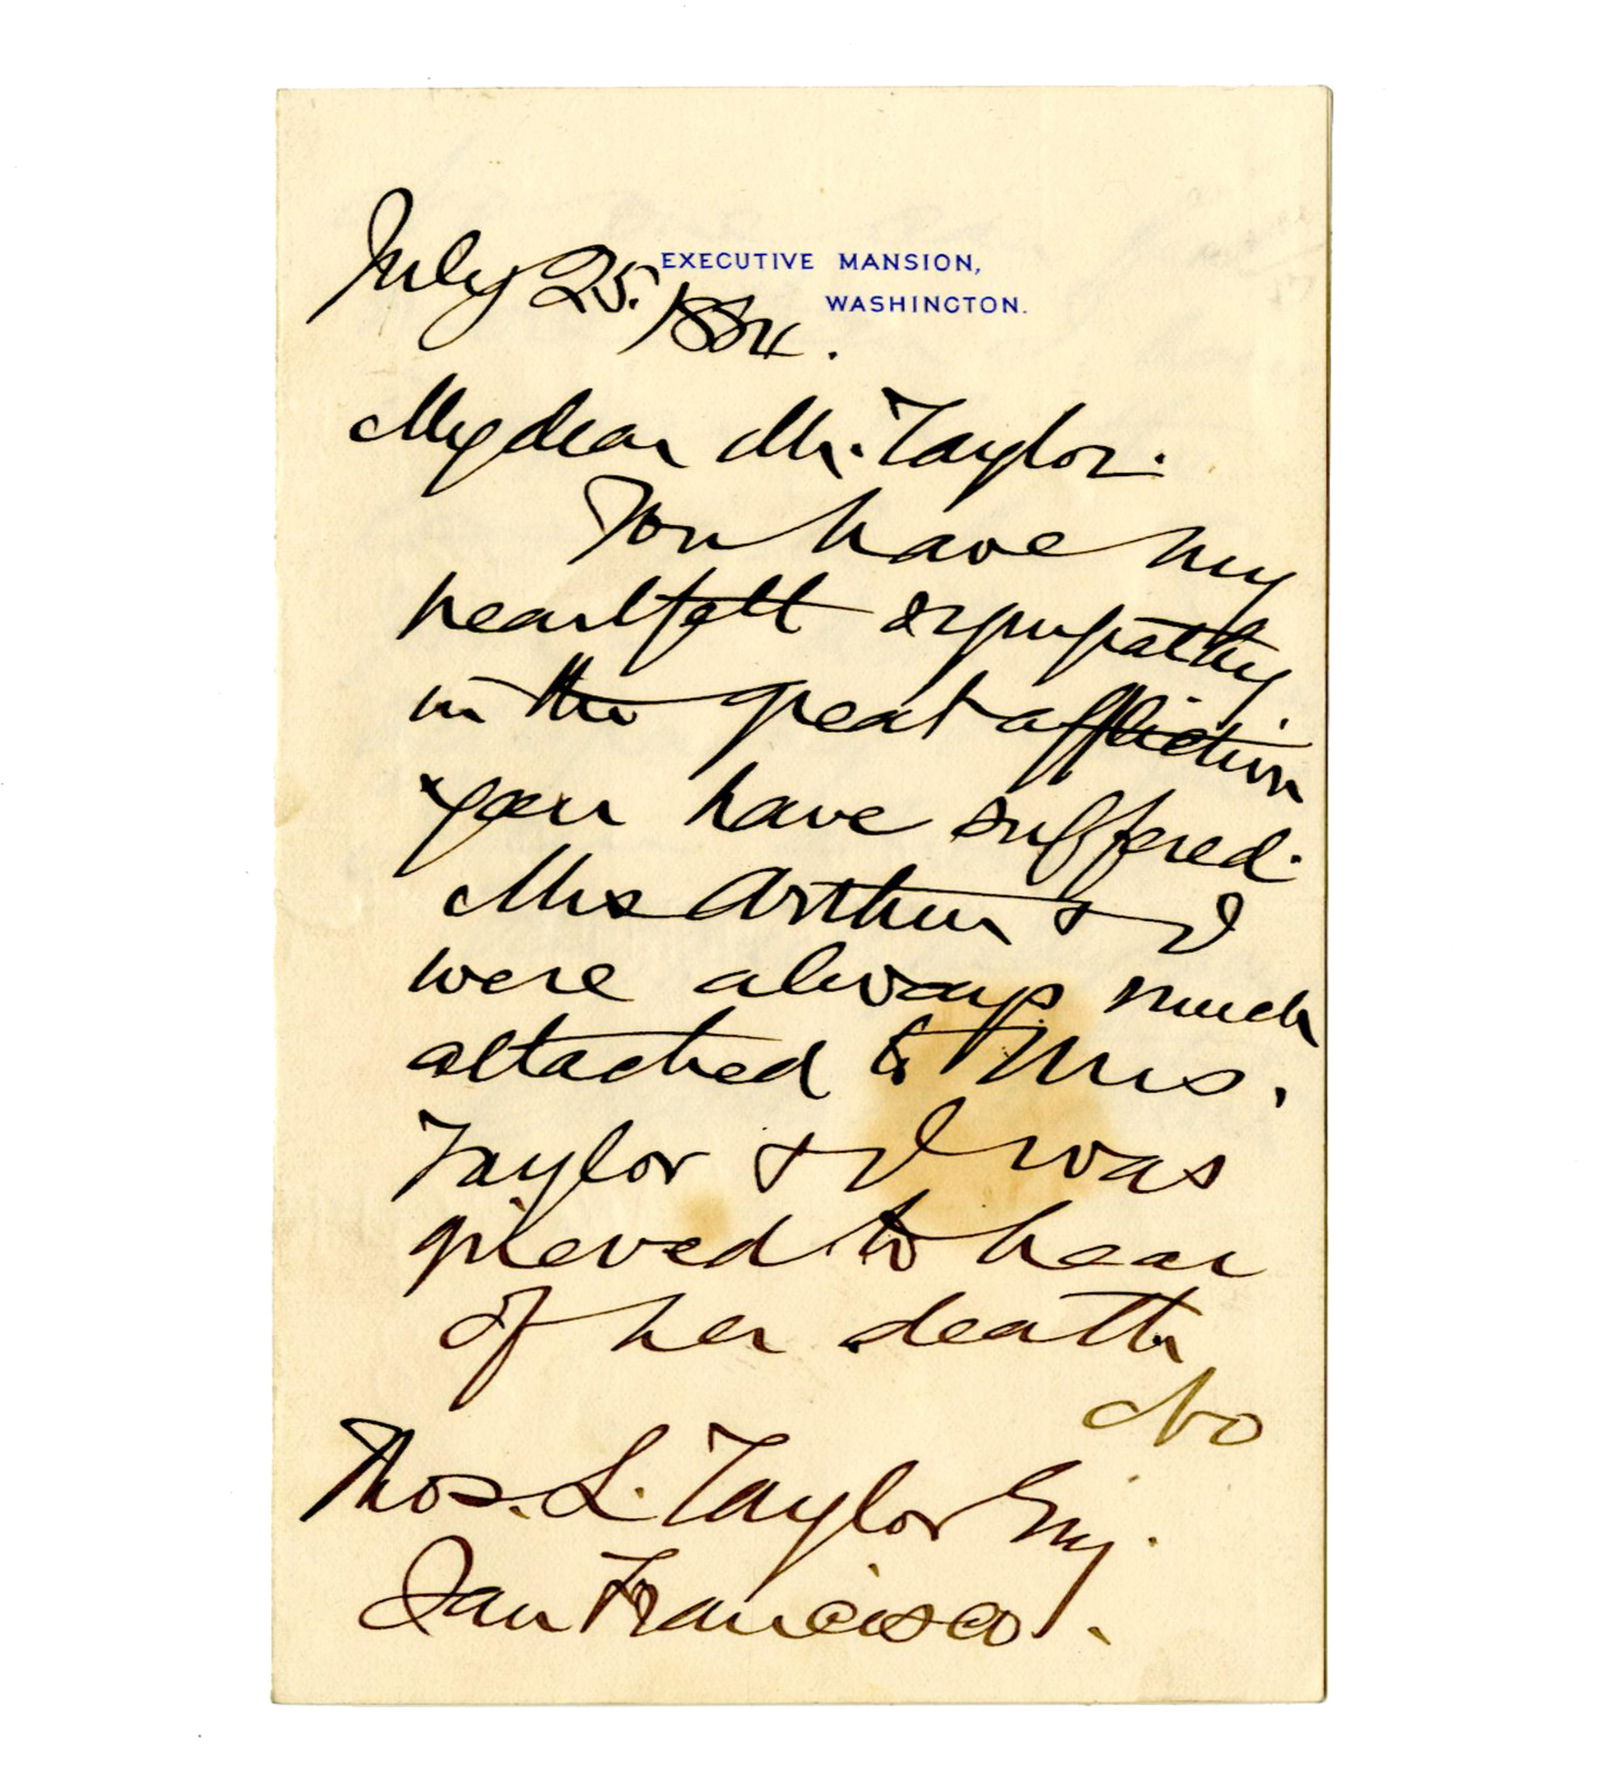 EXECUTIVE MANSION,
WASHINGTON.
July 25. 1884.
My dear Mr. Taylor.
You have my
heartfelt sympathy
in the great affliction
you have suffered.
Mrs Arthur & I
were always much
attached to Mrs.
Taylor & I was
grieved to hear
of her death
No
Thos. L. Taylor Esq.
San Francisco.